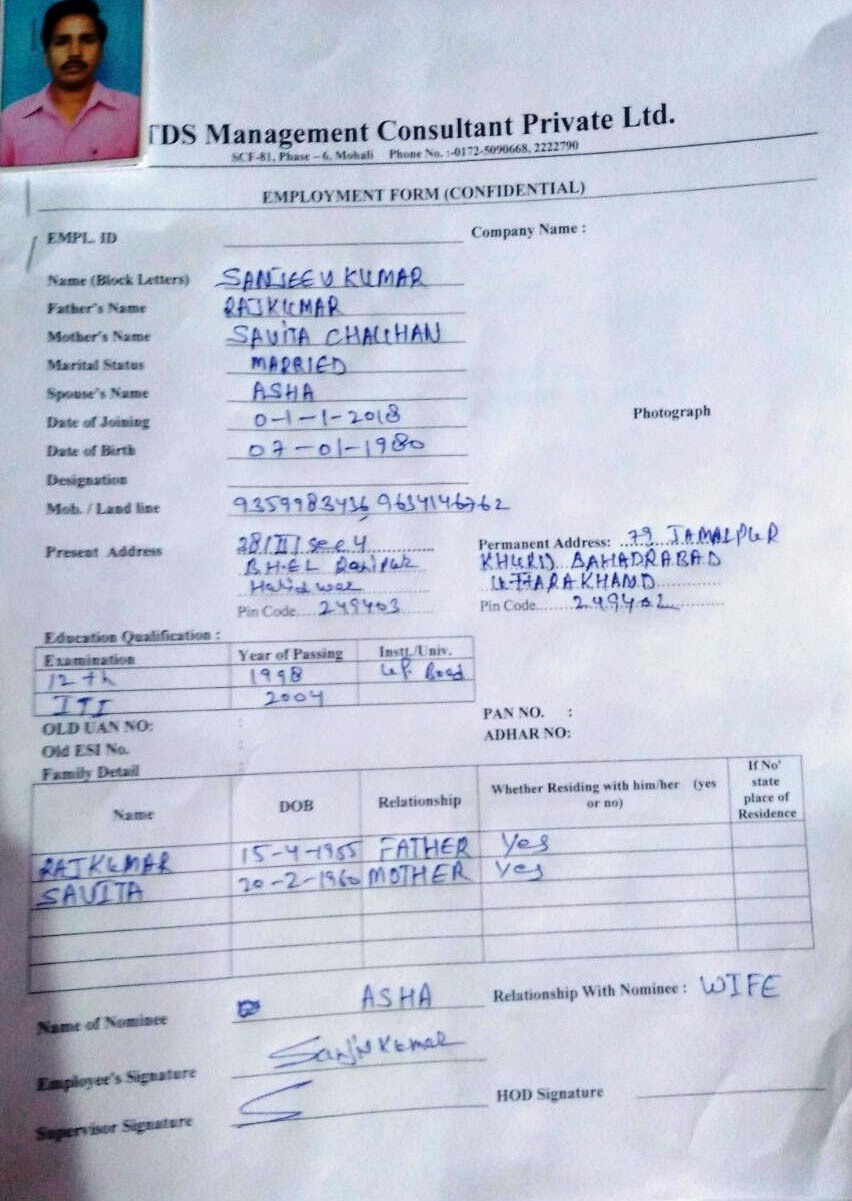 TDS Management Consultant Private Ltd.
SCF-81, Phase – 6, Mohali Phone No. :-0172-5090668, 2222790
EMPLOYMENT FORM (CONFIDENTIAL)
EMPL. ID Company Name :
Name (Block Letters) SANJEEV KUMAR
Father's Name RAJKUMAR
Mother's Name SAVITA CHAUHAN
Marital Status MARRIED
Spouse's Name ASHA
Date of Joining 0-1-1-2018
Photograph
Date of Birth 07-01-1980
Designation
Mob. / Land line 9359983436 9634146762
Present Address 28/II/sec 4 Permanent Address: 79 JAMALPUR
B.H.EL Ranipur KHURD BAHADRABAD
Haridwar UTTARAKHAND
Pin Code.... 249403 Pin Code........ 249402
Education Qualification :
Examination Year of Passing Instt./Univ.
12th 1998 U.P. Boad
ITI 2004
OLD UAN NO: : PAN NO. :
Old ESI No. : ADHAR NO:
Family Detail :
Name DOB Relationship Whether Residing with him/her (yes or no) If No' state place of Residence
RAJKUMAR 15-4-1955 FATHER Yes
SAVITA 20-2-1960 MOTHER Yes
Name of Nominee ASHA Relationship With Nominee : WIFE
Employee's Signature Sanjv Kumar
Supervisor Signature HOD Signature